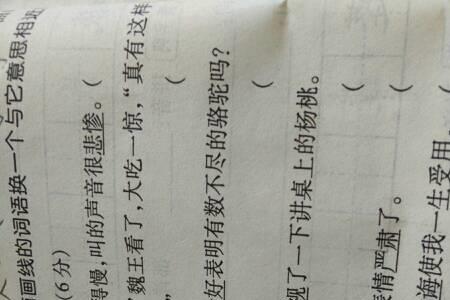 画线的词语换一个与它意思相近
(6分)
得慢,叫的声音很悲惨。(
魏王看了,大吃一惊,“真有这样
” (
好表明有数不尽的骆驼吗? (
了一下讲桌上的杨桃。 (
情严肃了。 (
使我一生受用。